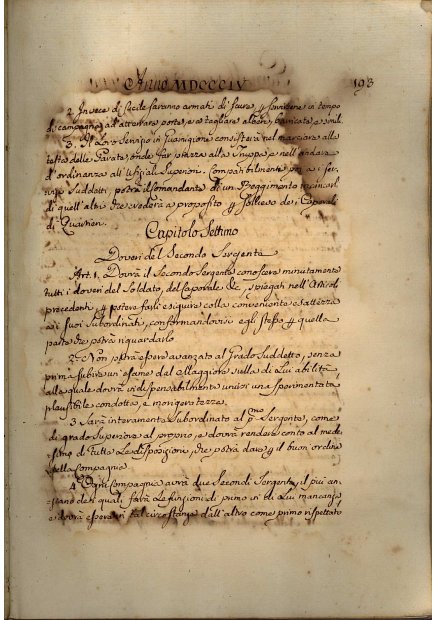 Anno MDCCCIV 193
2. In vece di Fucile saranno armati di Scure, per servirsene in tempo
di campagna ad atterrare porte, e a tagliare alberi, barricate e simili
3. Il Loro Servizio in Guarnigione consisterà nel marciare alla
testa della Parata, onde far piazza alla Truppa, e nell'andare
d'ordinanza all'Ufiziali Superiori. Compatibilmente poi a i ser-
vizi Suddetti, potrà il Comandante di un Reggimento incaricarli
di quell'altri che crederà a proposito per sollievo dei Caporali
di Quartiere.
Capitolo Settimo
Doveri del Secondo Sergente
Art. 1. Dovrà il Secondo Sergente conoscere minutamente
tutti i doveri del Soldato, del Caporale &c, spiegati nell'Articoli
precedenti, per potere farli eseguire colla conveniente esattezza
a i suoi Subordinati, conformandovisi egli stesso per quella
parte che potrà riguardarlo
2. Non potrà essere avanzato al Grado Suddetto, senza
prima subire un esame del Maggiore sulla di Lui abilità,
alla quale dovrà indispensabilmente unirsi una sperimentata
plausibile condotta, e morigeratezza.
3. Sarà interamente Subordinato al pmo Sergente, come
di grado Superiore al proprio, e dovrà rendere conto al mede-
simo di tutte Le disposizioni, che potrà dare per il buon ordine
della Compagnia
4. Ogni Compagnia avrà due Secondi Sergenti, il più an-
ziano dei quali, farà Le funzioni di primo in di Lui mancanza
e dovrà essere in tal circostanza dall'altro come primo rispettato